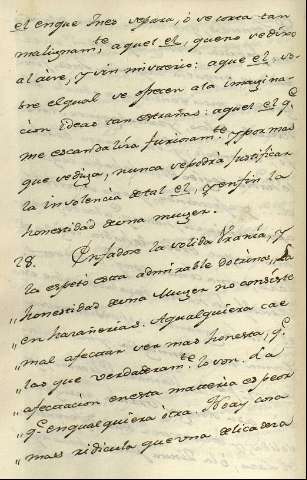 el en que Ines repara, ò se corta tan
malignam.te, aquel el, que no se dixo
al aire, y sin misterio: aque el, so-
bre el qual se ofrecen a la imagina-
cion ideas tan estrañas: aquel el q.e
me escandaliza furiosam.te y por mas
que se diga, nunca se podrà justificar
la insolencia de tal el, y en fin la
honestidad de una muger.
28. Enfadose la solida Urania, y
la espetò esta admirable dotrina, La
„ honestidad de una Muger no consiste
„ en harañerias. A qualquiera cae
„ mal afectar ser mas honesta, q.e
„ las que verdaderam.te lo son. La
„ afectacion en esta matteria es peor
„ q.e en qualquiera òtra. No ay cosa
„ mas ridicula que una delicadeza